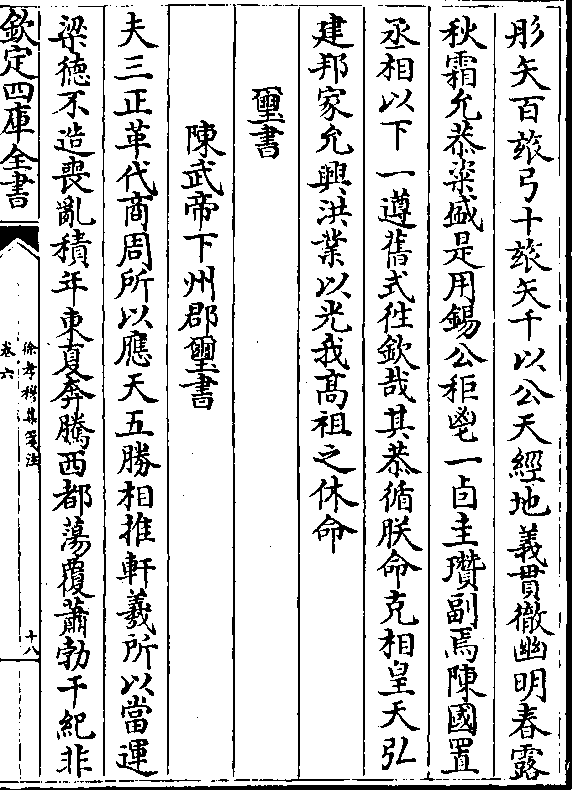 彤矢百玈弓十玈矢千以公天經地義貫徹幽明春露
秋霜允恭粢盛是用錫公秬鬯一卣圭瓚副焉陳國置
丞相以下一遵舊式往欽哉其恭循朕命克相皇天弘
建邦家允興洪業以光我高祖之休命
璽書
陳武帝下州郡璽書
夫三正革代商周所以應天五勝相推軒羲所以當運
梁德不造喪亂積年東夏奔騰西都蕩覆蕭勃干紀非
欽定四庫全書
徐孝穆集箋注
卷六
十八